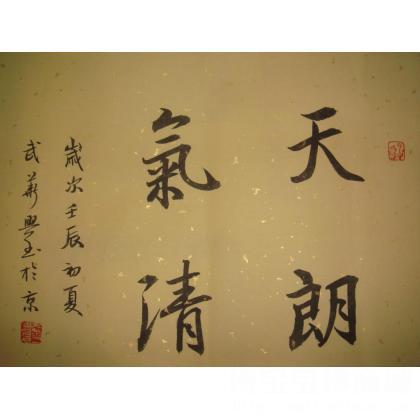 天朗
氣清
歲次壬辰初夏
武華興書於京